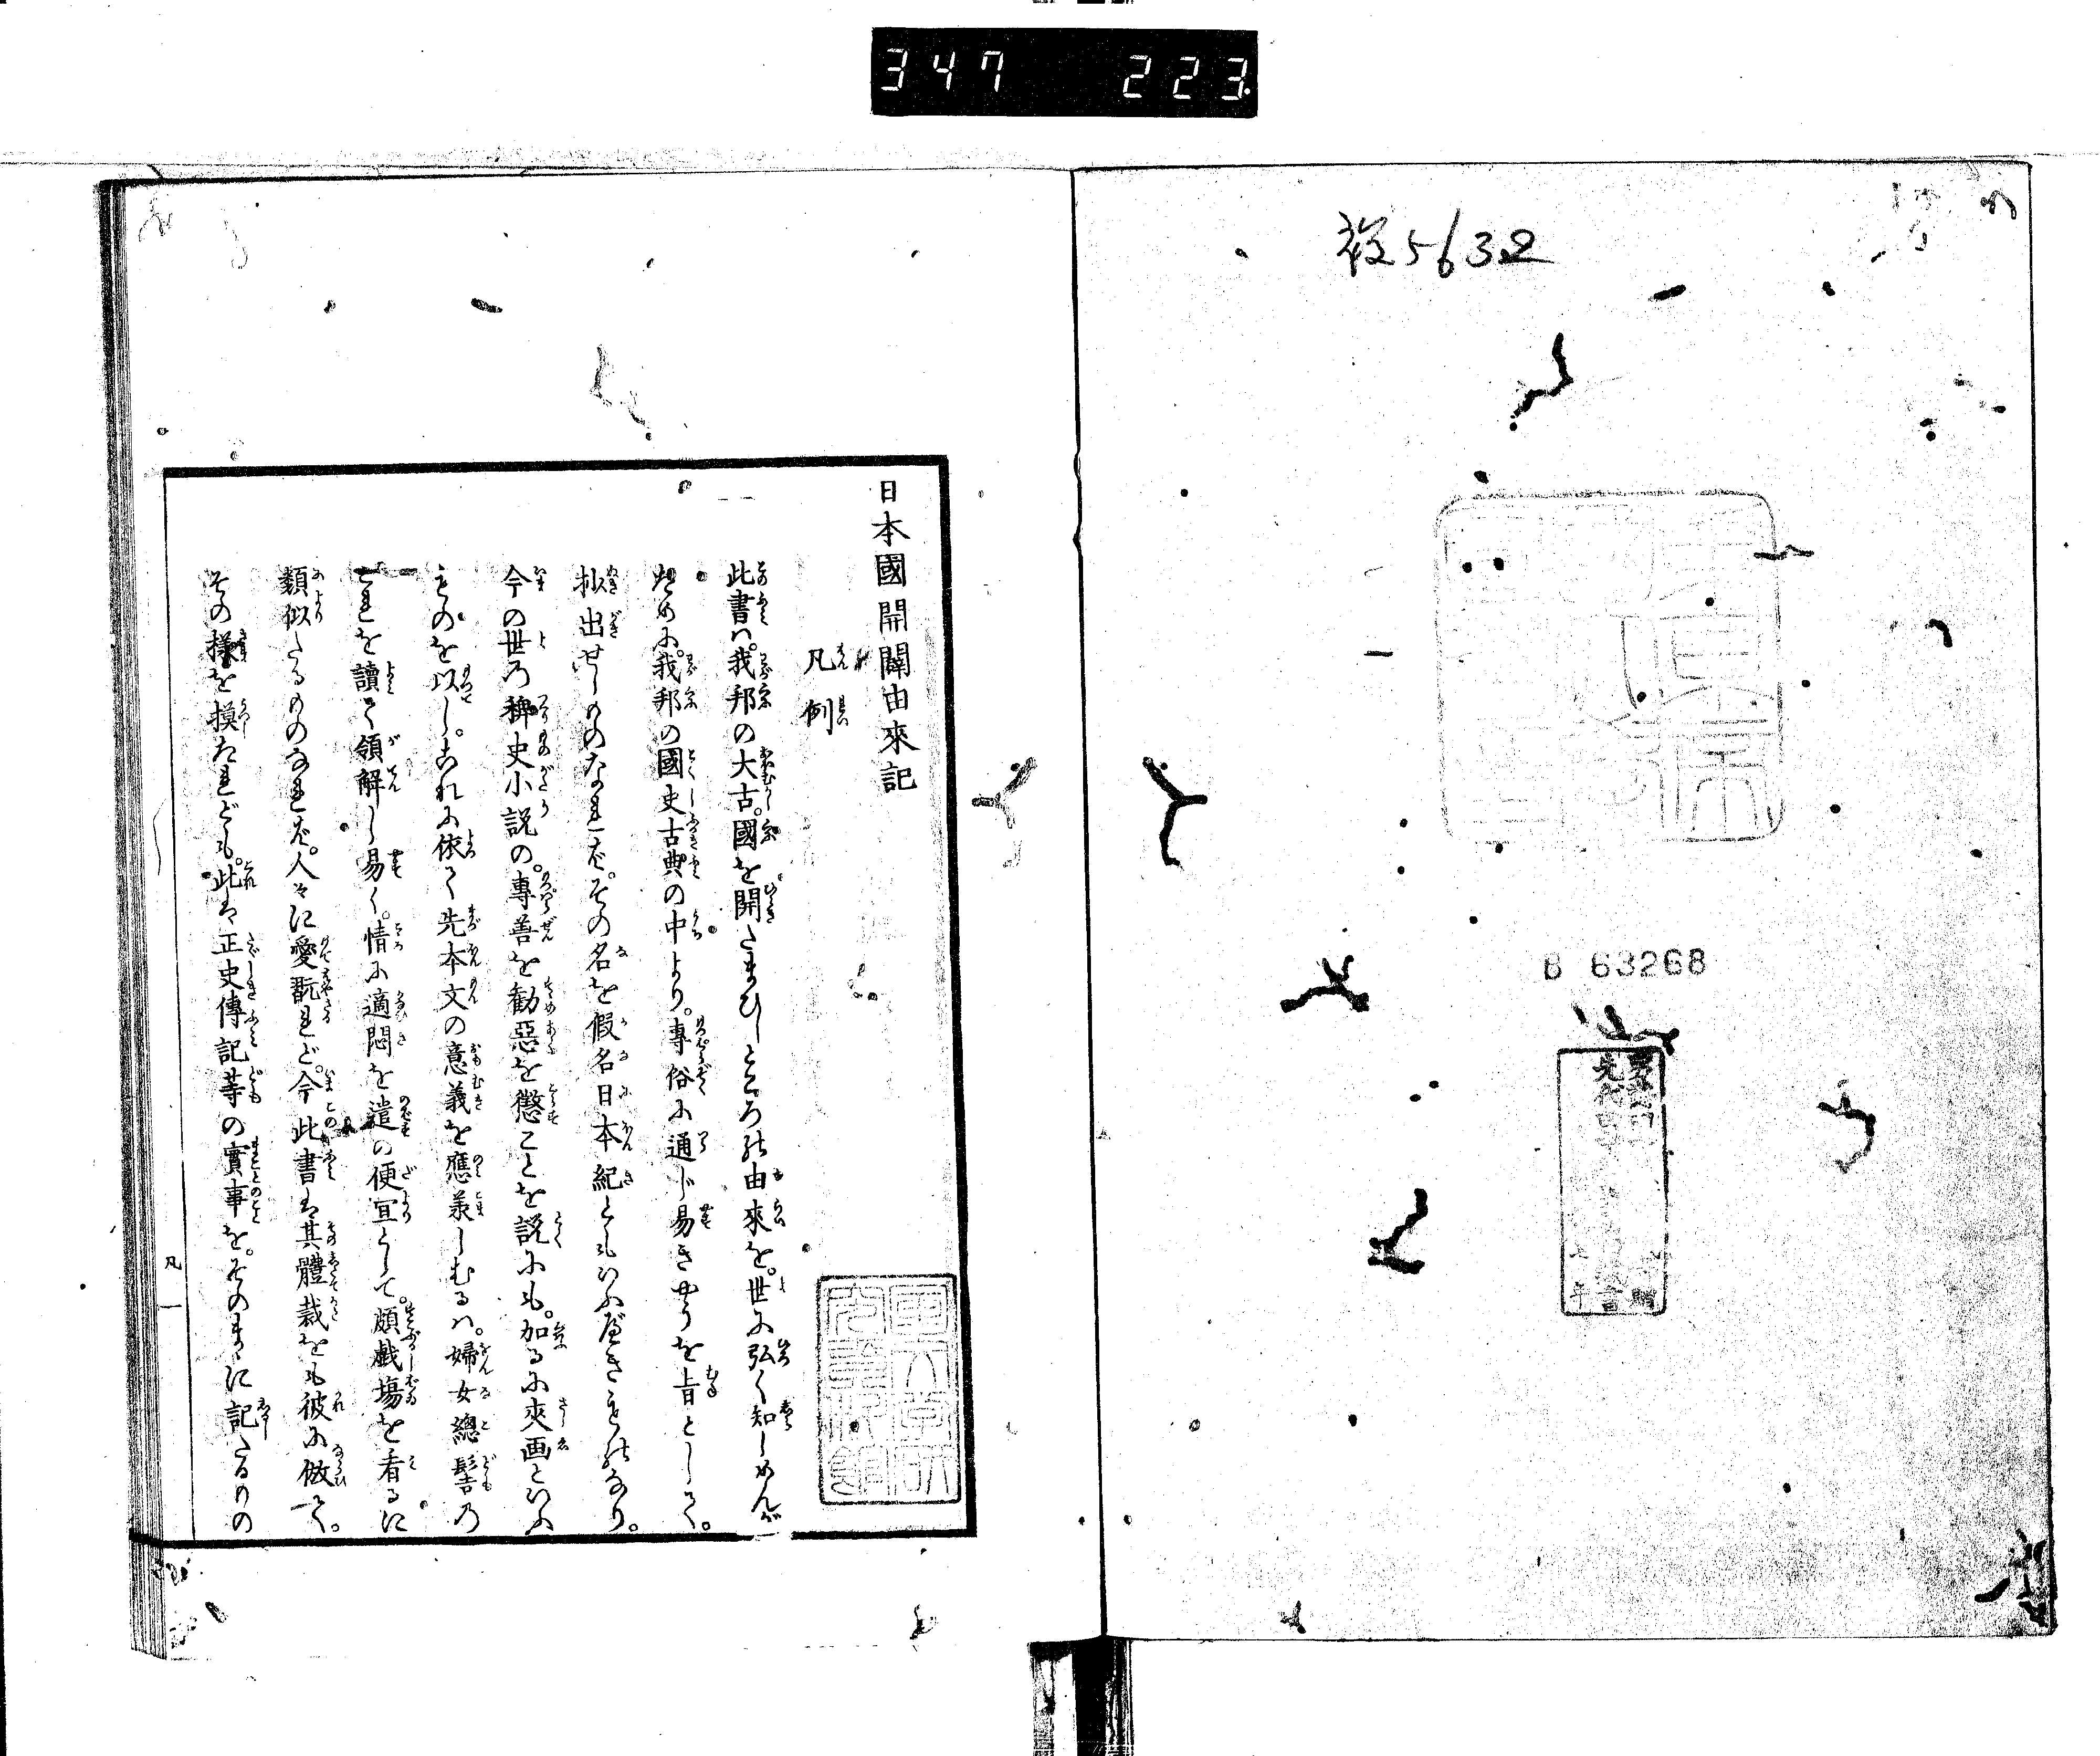 347 223
複5632
B 63268
日本國開闢由來記
凡例
此書ハ。我邦の大古。國を開たまひしところの由來を。世に弘く知しめんが
ために。我邦の國史古典の中より。專俗に通じ易きやうを旨として。
抄出せしものなれば。その名を假名日本紀ともいふべきものなり。
今の世の稗史小説の。專善を勸惡を懲ことを說にも。加るに夾画といふ
ものを以し。これに依て先本文の意義を應羕しむるハ。婦女總髻の
これを讀て領解し易く。情に適悶を遣の便宜として。頗戲塲を看るに
類似たるものなれば。人々に愛翫れど。今此書は其體裁をも彼に倣て。
その樣を摸たれども。此は正史傳記等の實事を。そのまゝに記たるもの
凡 一